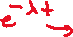 e^{-λt} →